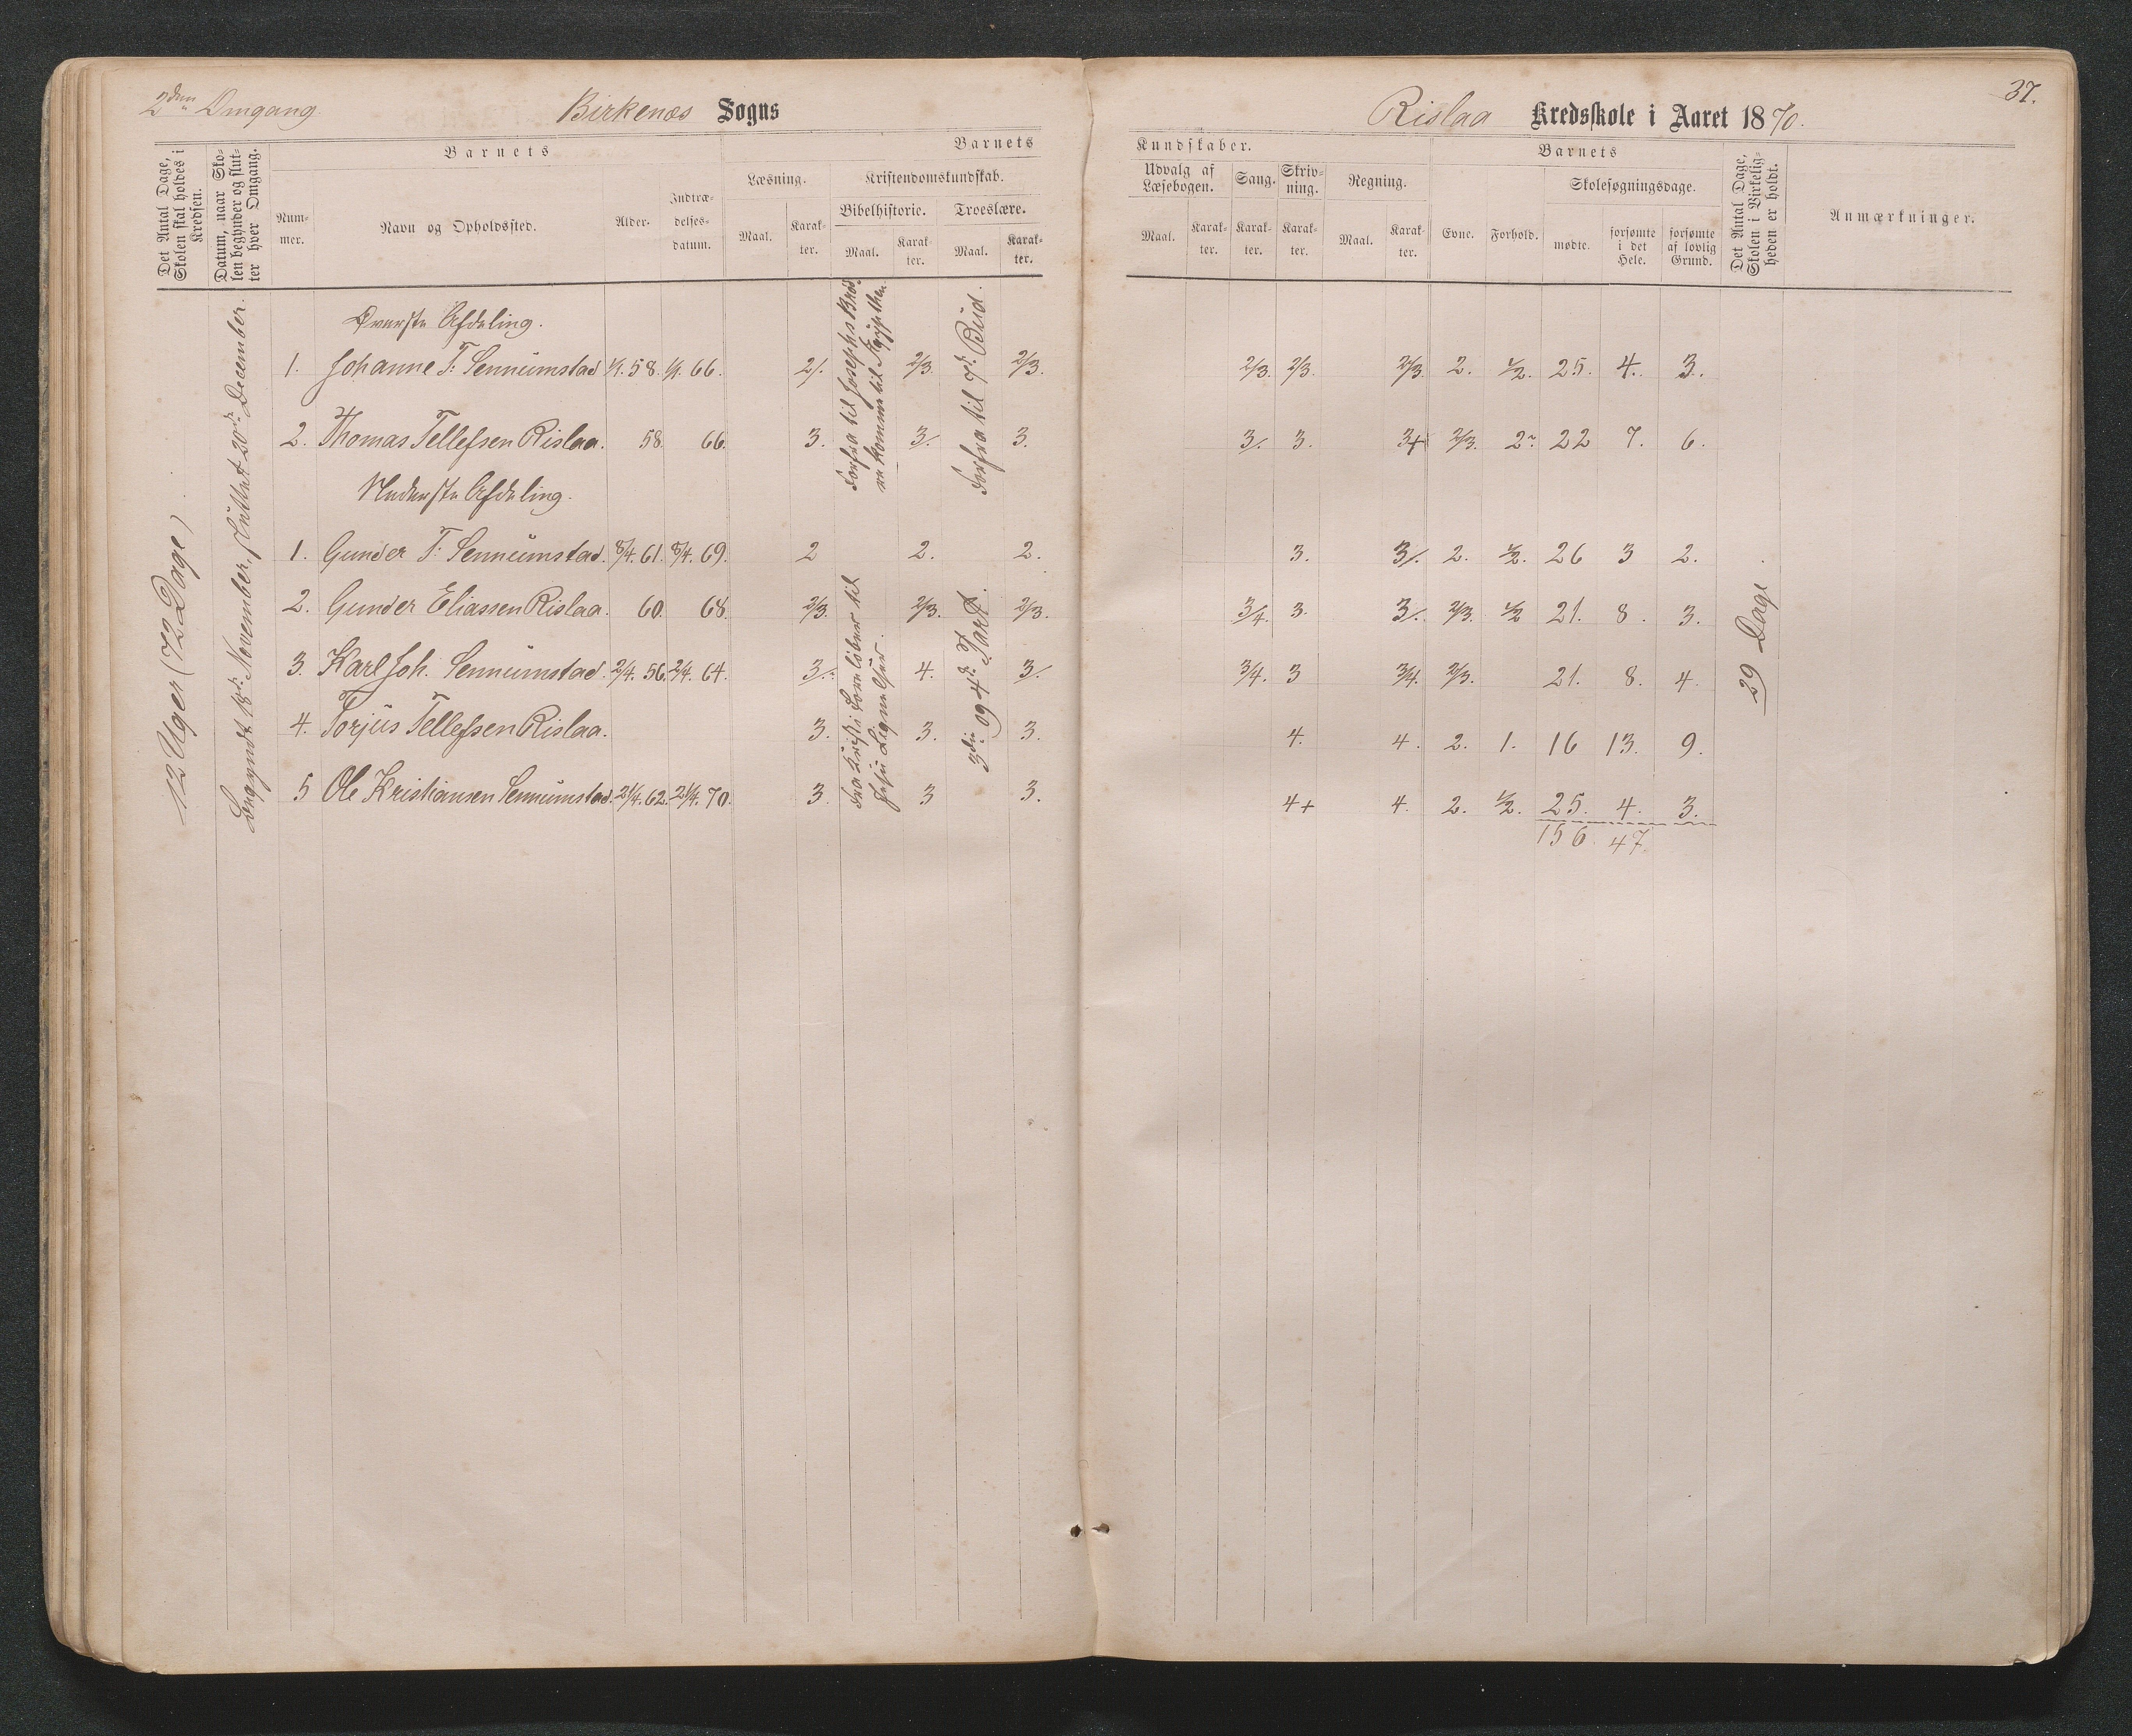 2den Omgang.
Birkenæs Sogns
Rislaa Kredsskole i Aaret 1870.
37.
Det Antal Dage, Skolen skal holdes i Kredsen.
Datum, naar Skolen begynder og slutter hver Omgang.
Barnets
Nummer.
Navn og Opholdssted.
Alder.
Indtrædelsesdatum.
Barnets
Læsning.
Maal.
Karakter.
Kristendomskundskab.
Bibelhistorie.
Maal.
Karakter.
Troeslære.
Maal.
Karakter.
Kundskaber.
Udvalg af Læsebogen.
Maal.
Karakter.
Sang.
Karakter.
Skrivning.
Karakter.
Regning.
Maal.
Karakter.
Barnets
Evne.
Forhold.
Skolesøgningsdage.
mødte.
forsømte i det Hele.
forsømte af lovlig Grund.
Det Antal Dage, Skolen i Virkeligheden er holdt.
Anmærkninger.
12 Uger (72 Dage)
Begyndt 18de November, sluttet 20de December.
Øverste Afdeling.
1. Johanne T. Sennumstad 1/1. 58. 1/1. 66. 2/. 2/3 2/3. 2/3. 2/3. 2/3. 2. 1/2. 25. 4. 3.
2. Thomas Tellefsen Rislaa. 58. 66. 3. 3/. 3. 3/. 3. 3+ 2/3. 2. 22 7. 6.
Forfra til Josephs Brødre komme til Ægypten.
Forfra til 7de Bud.
Nederste Afdeling.
1. Gunder T. Sennumstad. 8/4. 61. 8/4. 69. 2 2. 2. 3. 3/. 2. 1/2. 26 3 2.
2. Gunder Eliassen Rislaa. 60. 68. 2/3. 2/3. 2/3. 3/4. 3. 3/. 2/3. 1/2 21. 8. 3.
3. Karl Joh. Sennumstad. 2/4. 56. 2/4. 64. 3/. 4. 3/. 3/4. 3 3/4. 2/3. 21. 8. 4.
4. Torjus Tellefsen Rislaa. 3. 3. 3. 4. 4. 2. 1. 16 13. 9.
5 Ole Kristiansen Sennumstad. 21/4. 62. 21/4. 70. 3. 3 3. 4+ 4. 2. 1/2. 25. 4. 3.
156. 47.
Fra Kristi Forelöber til Jesu Lignelser.
3die og 4de Part.
29 Dage